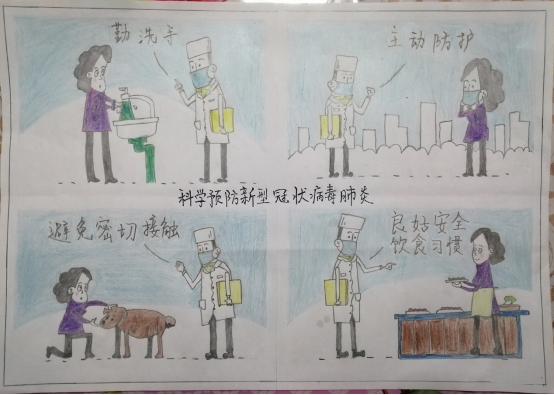 勤洗手
主动防护
科学预防新型冠状病毒肺炎
避免密切接触
良姑安全
饮食习惯